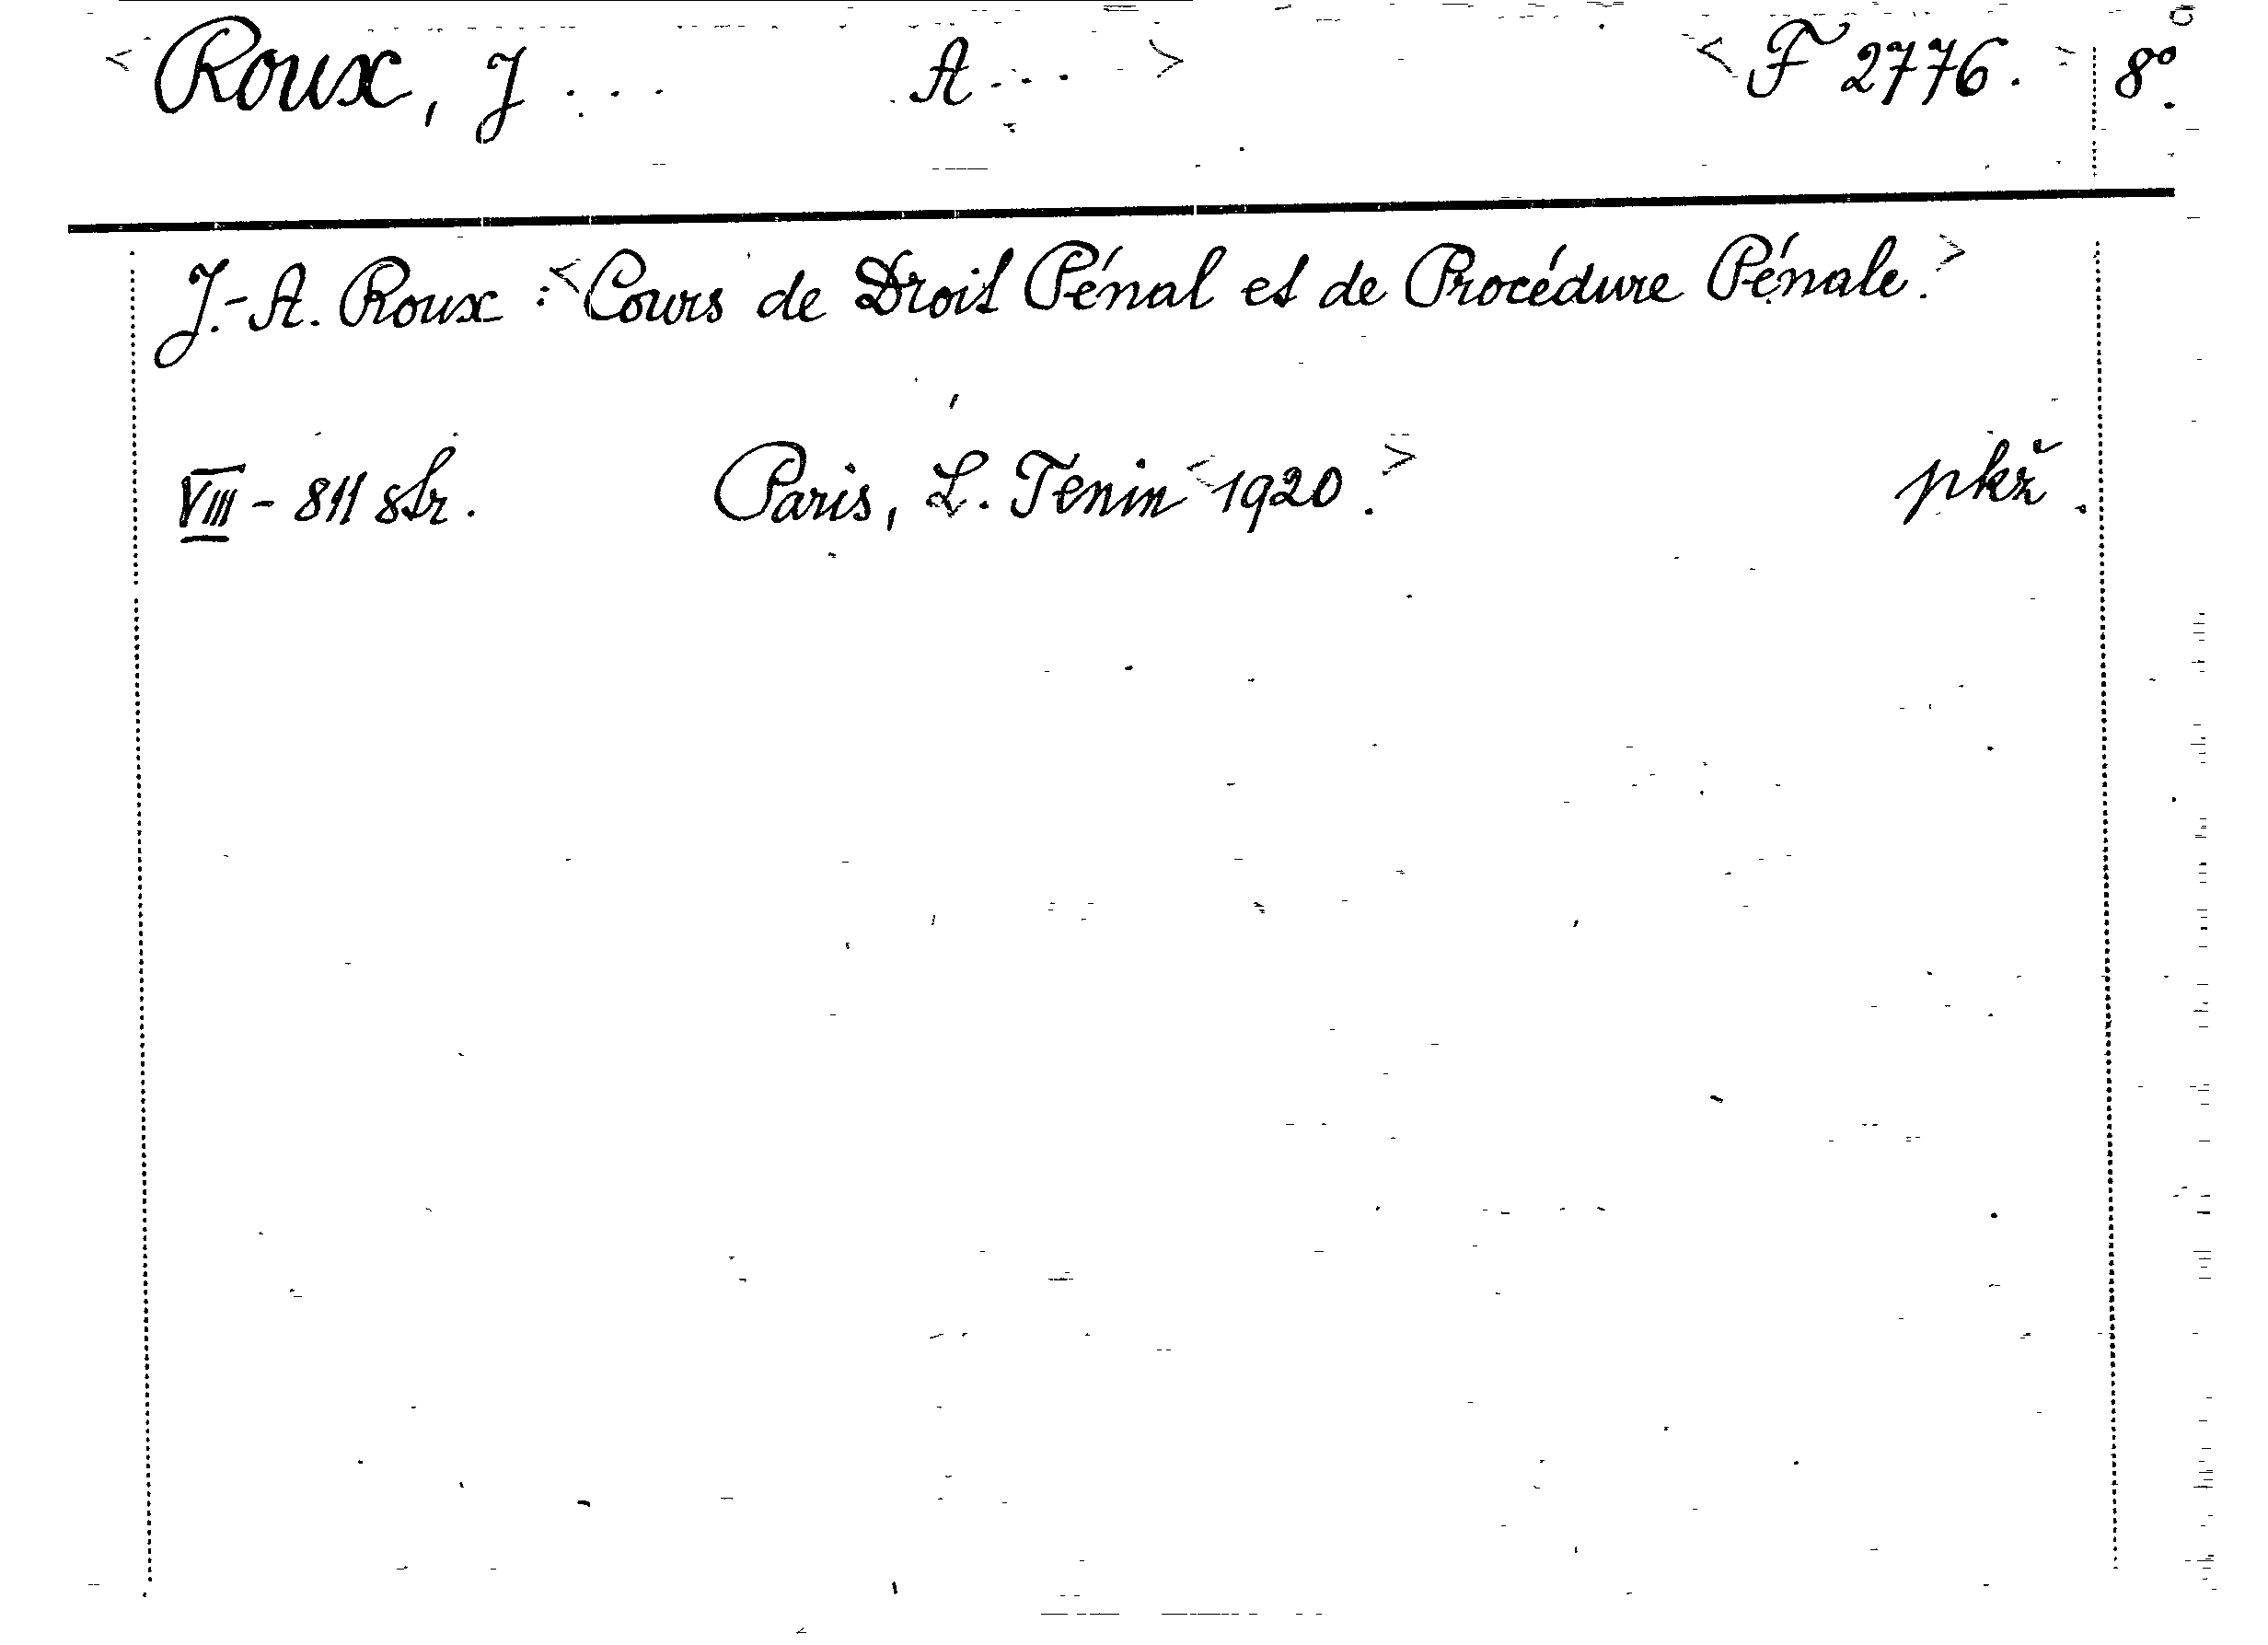 <Roux, J... A...> <F 2776.> 8°.
J.-A. Roux :<Cours de Droit Pénal et de Procédure Pénale.>
VIII - 811 str. Paris, L. Tenin <1920.> pkž.